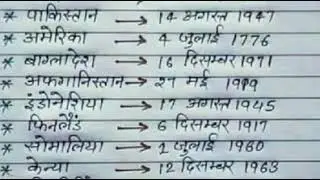 * पाकिस्तान → 14 अगस्त 1947
* अमेरिका → 4 जुलाई 1776
* बाग्लादेश → 16 दिसम्बर 1971
* अफगानिस्तान → 27 मई 1919
* इंडोनेशिया → 17 अगस्त 1945
* फिनलैंड → 6 दिसम्बर 1917
* सोमालिया → 1 जुलाई 1960
* केन्या → 12 दिसम्बर 1963